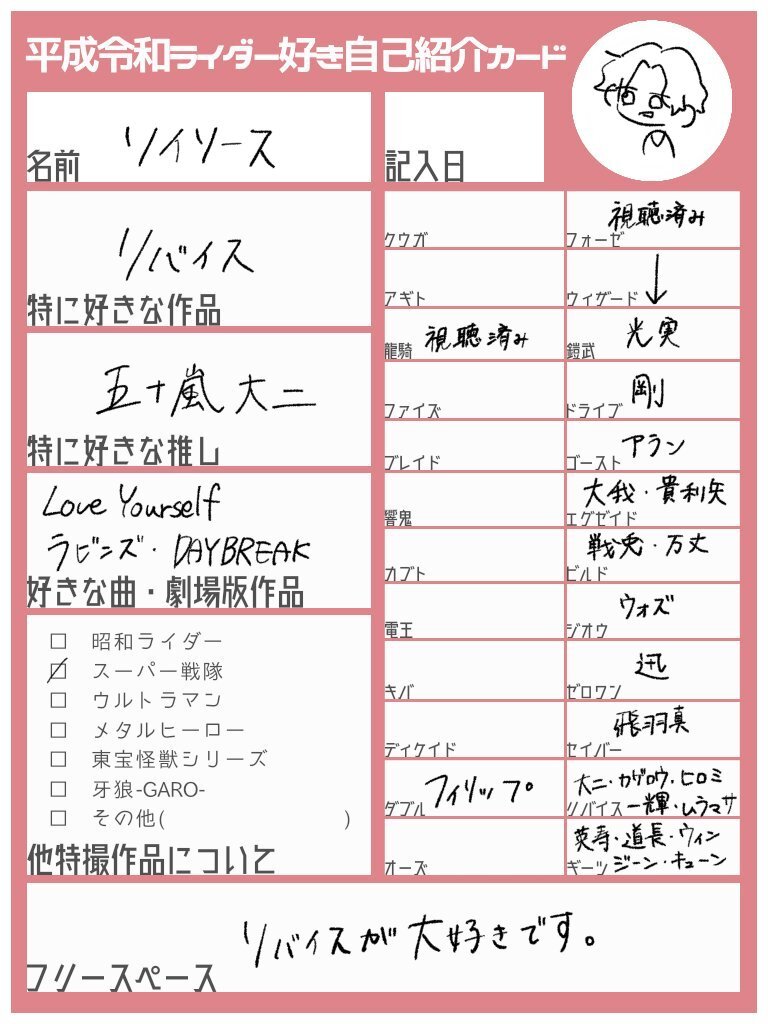 平成令和ライダー好き自己紹介カード
リイソース
名前
記入日
リバイス
特に好きな作品
五十嵐大二
特に好きな推し
Love Yourself
ラビンズ・DAYBREAK
好きな曲・劇場版作品
□ 昭和ライダー
☑ スーパー戦隊
□ ウルトラマン
□ メタルヒーロー
□ 東宝怪獣シリーズ
□ 牙狼-GARO-
□ その他( )
他特撮作品について
クウガ
アギト
視聴済み
龍騎
ファイズ
ブレイド
響鬼
カブト
電王
キバ
ディケイド
フィリップ
ダブル
オーズ
視聴済み
フォーゼ
↓
ウィザード
光実
鎧武
剛
ドライブ
アラン
ゴースト
大我・貴利矢
エグゼイド
戦兎・万丈
ビルド
ウォズ
ジオウ
迅
ゼロワン
飛羽真
セイバー
大二・カゲロウ・ヒロミ
リバイス 一輝・ムラマサ
英寿・道長・ウィン
ギーツ ジーン・キューン
リバイスが大好きです。
フリースペース